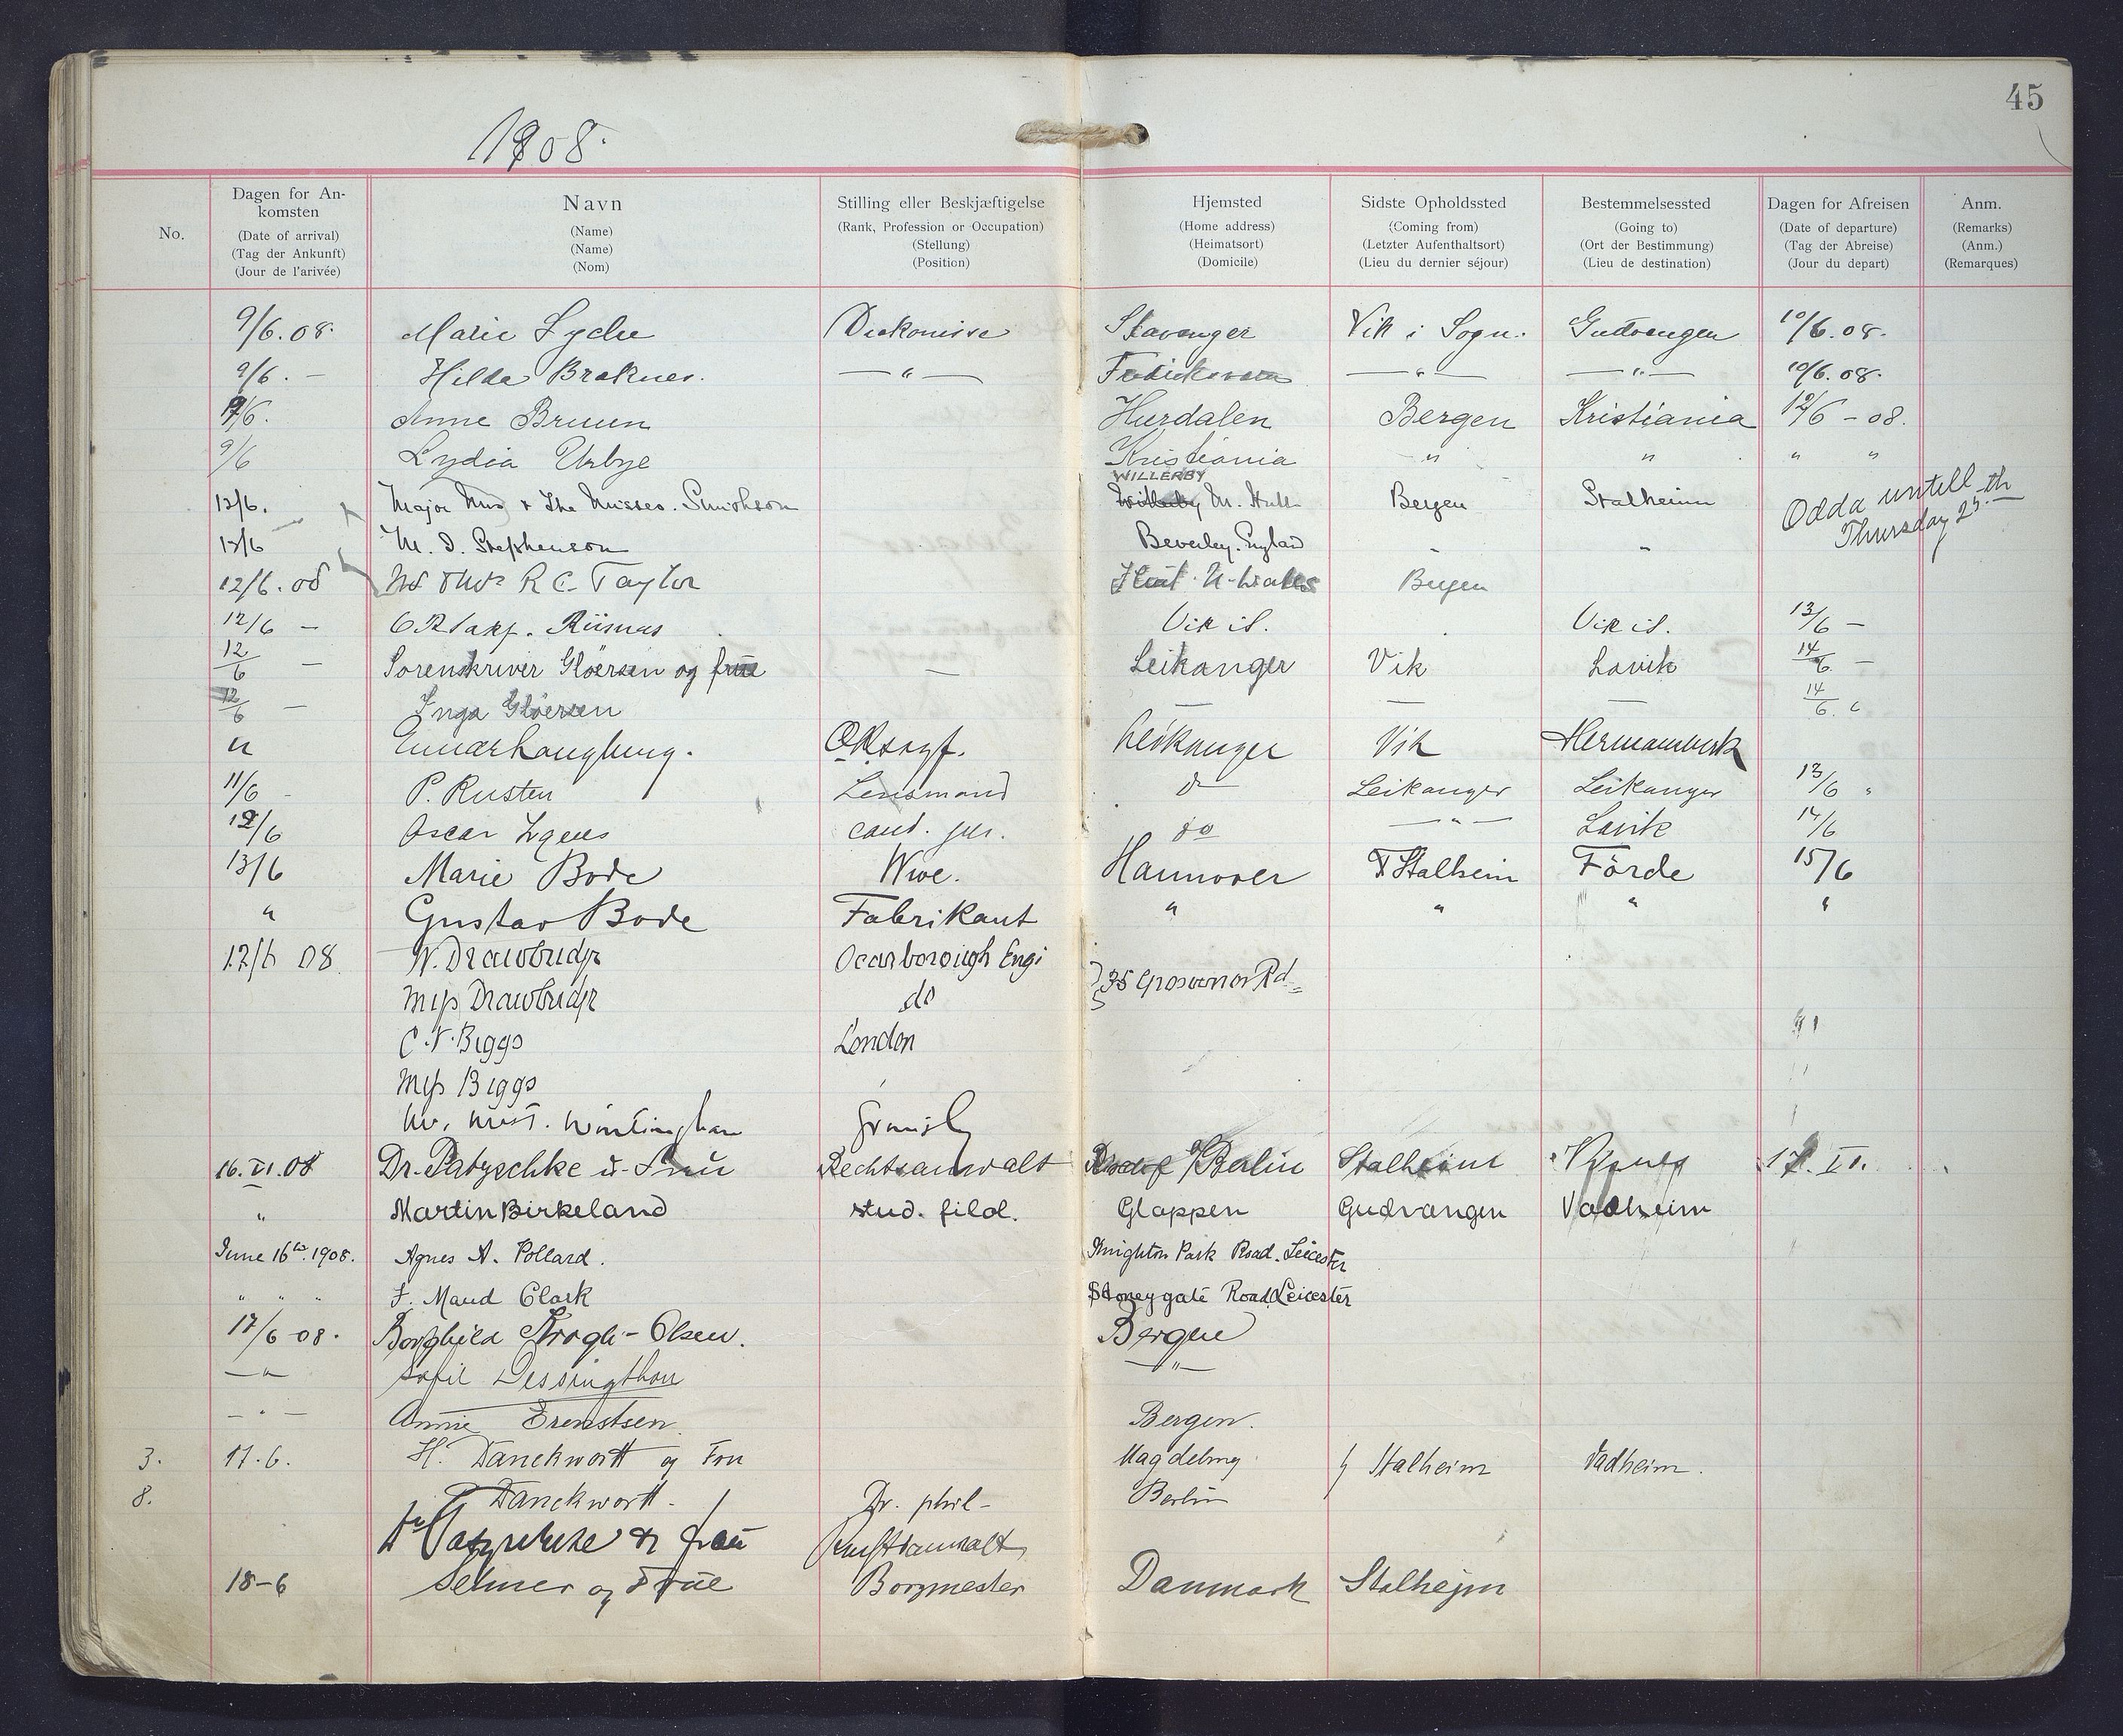 45
1908.
No. Dagen for Ankomsten Navn Stilling eller Beskjæftigelse Hjemsted Sidste Opholdssted Bestemmelsessted Dagen for Afreisen Anm.
(Date of arrival) (Name) (Rank, Profession or Occupation) (Home address) (Coming from) (Going to) (Date of departure) (Remarks)
(Tag der Ankunft) (Name) (Stellung) (Heimatsort) (Letzter Aufenthaltsort) (Ort der Bestimmung) (Tag der Abreise) (Anm.)
(Jour de l'arivée) (Nom) (Position) (Domicile) (Lieu du dernier séjour) (Lieu de destination) (Jour du depart) (Remarques)
9/6.08. Marie Lyche Diakonisse Stavanger Vik i Sogn. Gudvangen 10/6.08.
9/6. — Hilda — " — — " — — " — 10/6.08.
9/6. Anne Bruun Hurdalen Bergen Kristiania 12/6 - 08.
9/6 Lydia Urbye Kristiania " " " "
WILLERBY
13/6. Major Mrs & The Misses. Bergen Stalheim Odda untill Thursday 25th
13/6 M. D. Stephenson Beverley. England " "
12/6.08 Mr & Mrs R C. Taylor Bergen
12/6 — OR sakf. Vik i S. Vik i S. 13/6 —
12/6 — Sorenskriver Gloërsen og frue — Leikanger Vik Lavik 14/6 —
12/6 — Inga Gloërsen — — — 14/6. "
" Einar Haugberg. ORsagf. Leikanger Vik Hermansverk
11/6 - P. Rusten Lensmand do Leikanger Leikanger 13/6 "
12/6 Oscar cand. jur. do — " — Lavik 14/6
13/6 Marie Bode Wwe. Hannover Stalheim Förde 15/6
" Gustav Bode Fabrikant " " " "
12/6 08 W. Drawbridge Scarborough Eng 35 Grosvenor Rd
Miss Drawbridge do
C. F. Biggs London
Miss Biggs
Mr. Mrs. Wintringham Grimsby
16.VI.08 Dr. Patzschke u. Frau Rechtsanwalt Berlin Stalheim 17. VI.
" Martin Birkeland stud. filol. Gloppen Gudvangen Vadheim
June 16th. 1908. Agnes A. Pollard. Knighton Park Road. Leicester
" " " F. Maud Clark Stoneygate Road Leicester
17/6 08. Borghild Krogh-Olsen. Bergen
— " Sofie Dessingthon — " —
— " — Annie Erentsen. Bergen.
3. 17.6. H. Danckwortt og Fru Magdeburg Stalheim Vadheim.
8. Danckwortt. Dr. phil. Berlin
Dr Patzschke & frau Rechtsanwalt
18-6 Selmer og Frue Borgmester Danmark Stalhejm